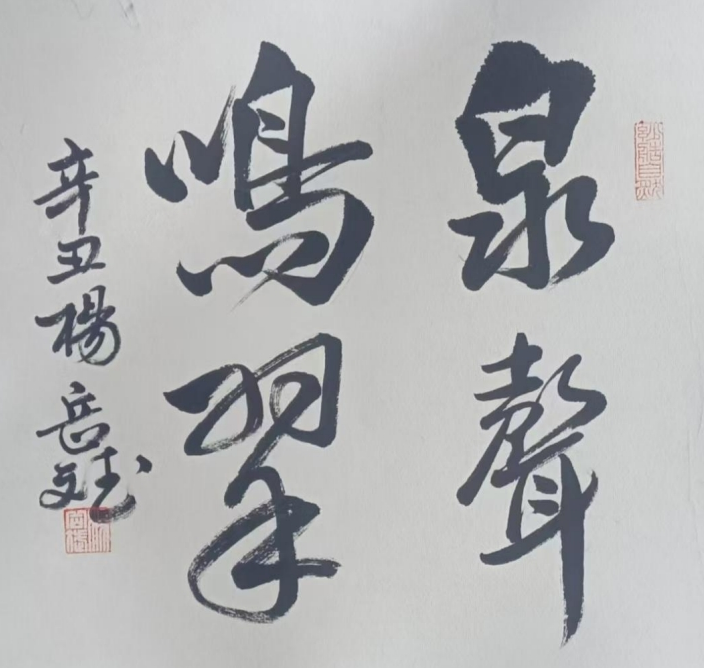 泉聲
鳴翠
辛丑楊岳